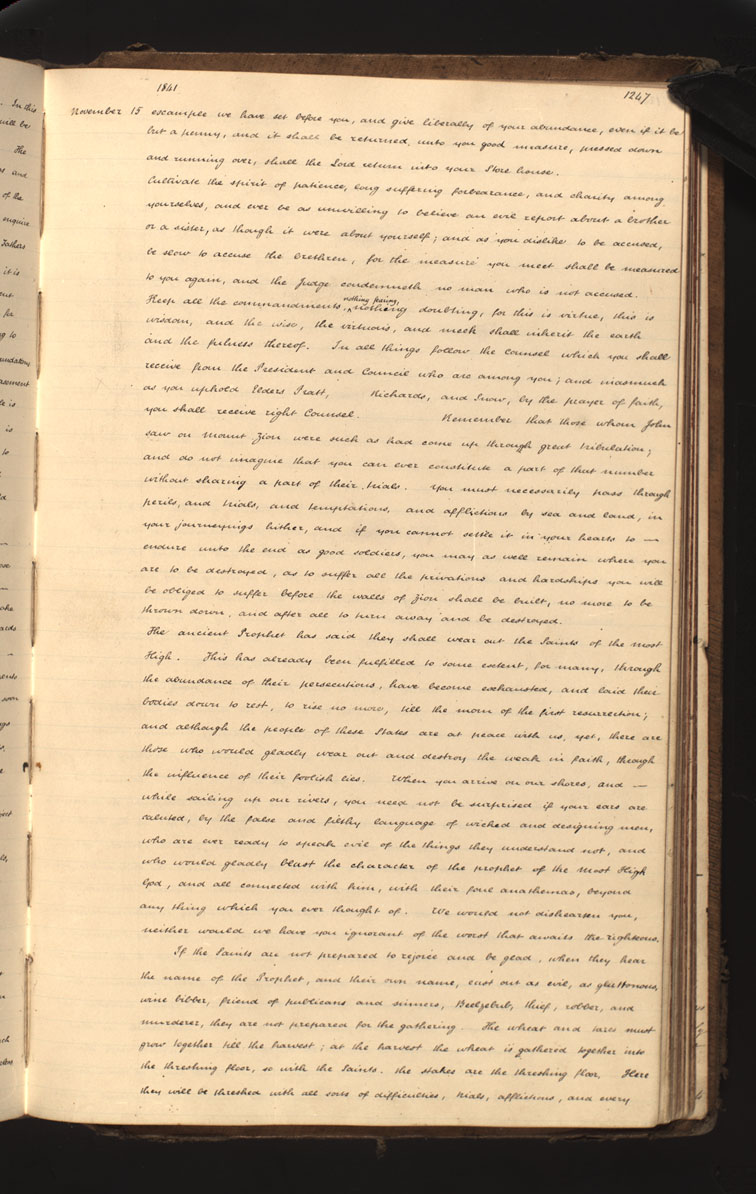 1841
1247
November 15 example we have set before you, and give liberally of your abundance, even if it be
but a penny, and it shall be returned, unto you good measure, pressed down
and running over, shall the Lord return into your Store house.
Cultivate the spirit of patience, long suffering forbearance, and charity among
yourselves, and ever be as unwilling to believe an evil report about a brother
or a sister, as though it were about yourself; and as you dislike to be accused,
be slow to accuse the brethren, for the measure you meet shall be measured
to you again, and the Judge condemneth no man who is not accused.
Keep all the commandments, nothing fearing, nothing doubting, for this is virtue, this is
wisdom, and the wise, the virtuous, and meek shall inherit the earth
and the fulness thereof. In all things follow the Counsel which you shall
receive from the President and Council who are among you; and inasmuch
as you uphold Elders Pratt, Richards, and Snow, by the prayer of faith,
you shall receive right Counsel. Remember that those whom John
saw on Mount Zion were such as had come up through great tribulation;
and do not imagine that you can ever constitute a part of that number
without sharing a part of their trials. You must necessarily pass through
perils, and trials, and temptations, and afflictions by sea and land, in
your journeyings hither, and if you cannot settle it in your hearts to —
endure unto the end as good soldiers, you may as well remain where you
are to be destroyed, as to suffer all the privations and hardships you will
be obliged to suffer before the walls of Zion shall be built, no more to be
thrown down, and after all to turn away and be destroyed.
The ancient Prophet has said they shall wear out the Saints of the most
High. This has already been fulfilled to some extent, for many, through
the abundance of their persecutions, have become exhausted, and laid their
bodies down to rest, to rise no more, till the morn of the first resurrection;
and although the people of these States are at peace with us, yet, there are
those who would gladly wear out and destroy the weak in faith, through
the influence of their foolish lies. When you arrive on our shores, and —
while sailing up our rivers, you need not be surprised if your ears are
saluted, by the false and filthy language of wicked and designing men,
who are ever ready to speak evil of the things they understand not, and
who would gladly blast the character of the prophet of the most High
God, and all connected with him, with their foul anathemas, beyond
any thing which you ever thought of. We would not dishearten you,
neither would we have you ignorant of the worst that awaits the righteous.
If the Saints are not prepared to rejoice and be glad, when they hear
the name of the Prophet, and their own name, cast out as evil, as gluttonous,
wine bibber, friend of publicans and sinners, Beelzebub, thief, robber, and
murderer, they are not prepared for the gathering. The wheat and tares must
grow together till the harvest; at the harvest the wheat is gathered together into
the threshing floor, so with the Saints. the stakes are the threshing floor. Here
they will be threshed with all sorts of difficulties, trials, afflictions, and every